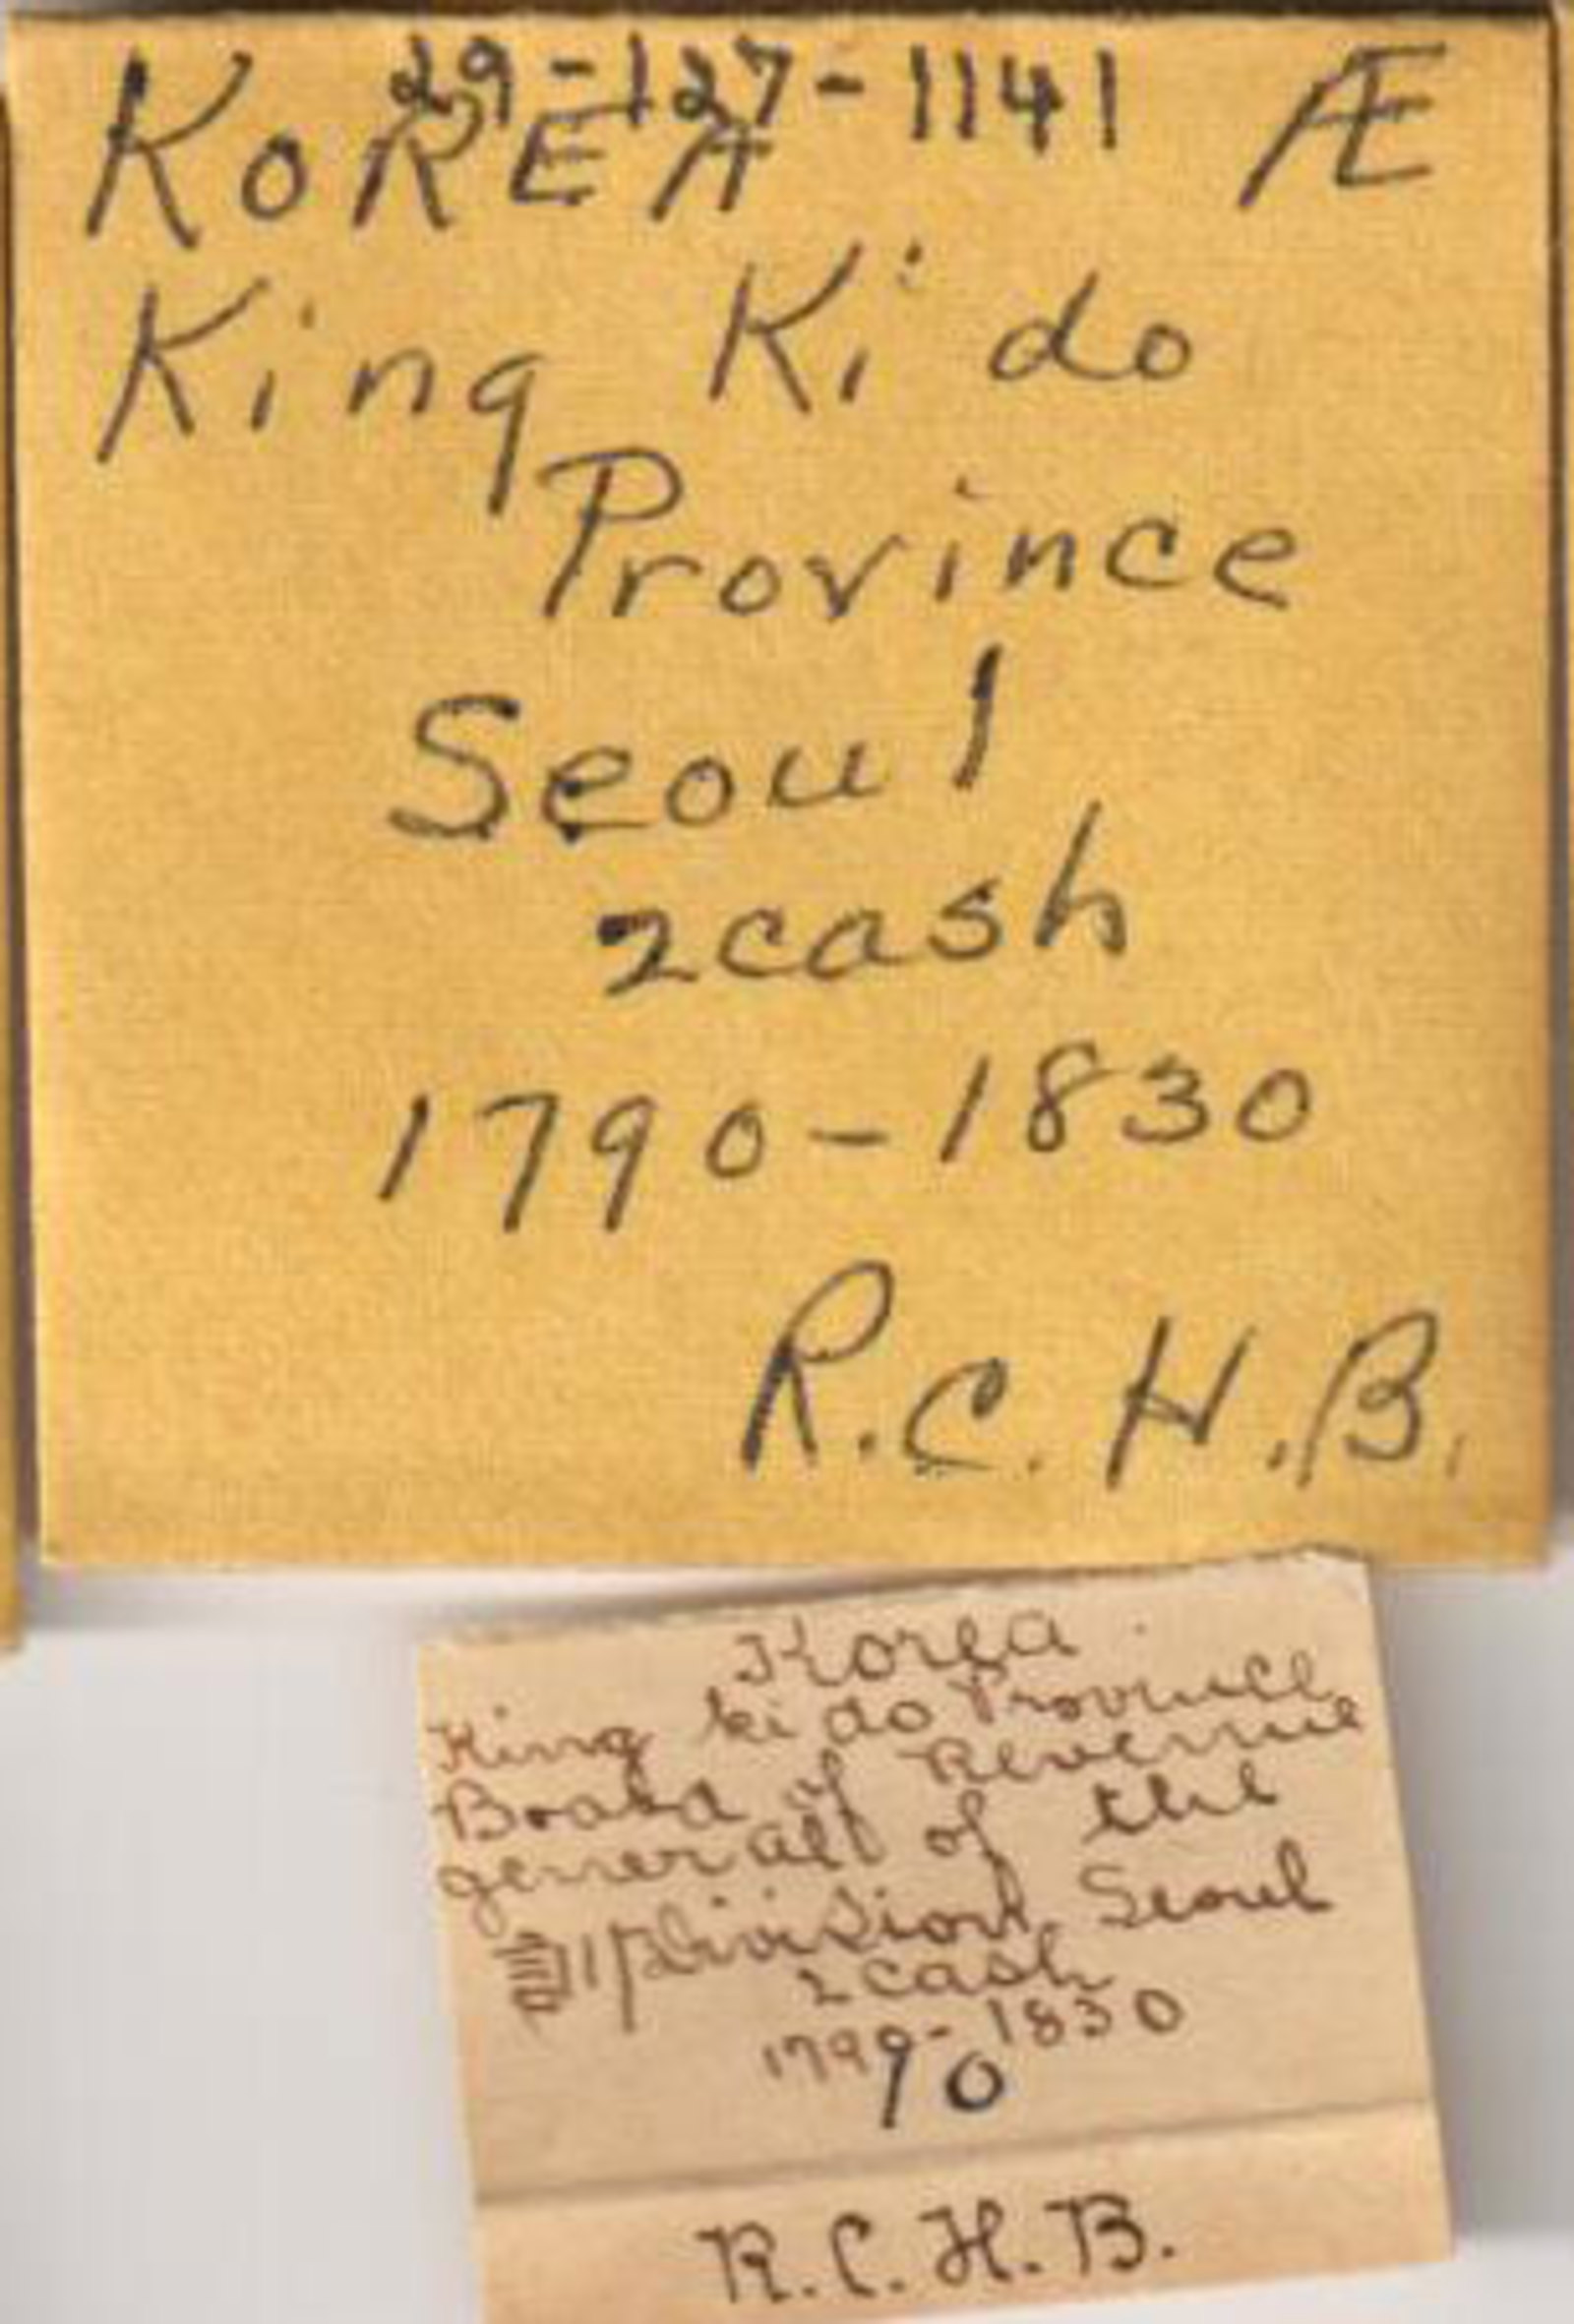 29-127-1141
KOREA Æ
King Ki do
Province
Seoul
2cash
1790-1830
R.C.H.B.
Korea
King ki do Province
Board of Revenue
general of the
訓 Division, Seoul
2 cash
1799-1830
90
R.C.H.B.